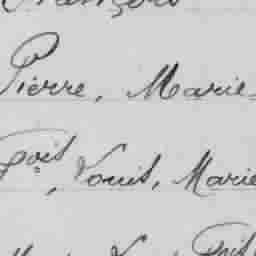 François
Pierre, Marie
Fçois, Louis, Marie